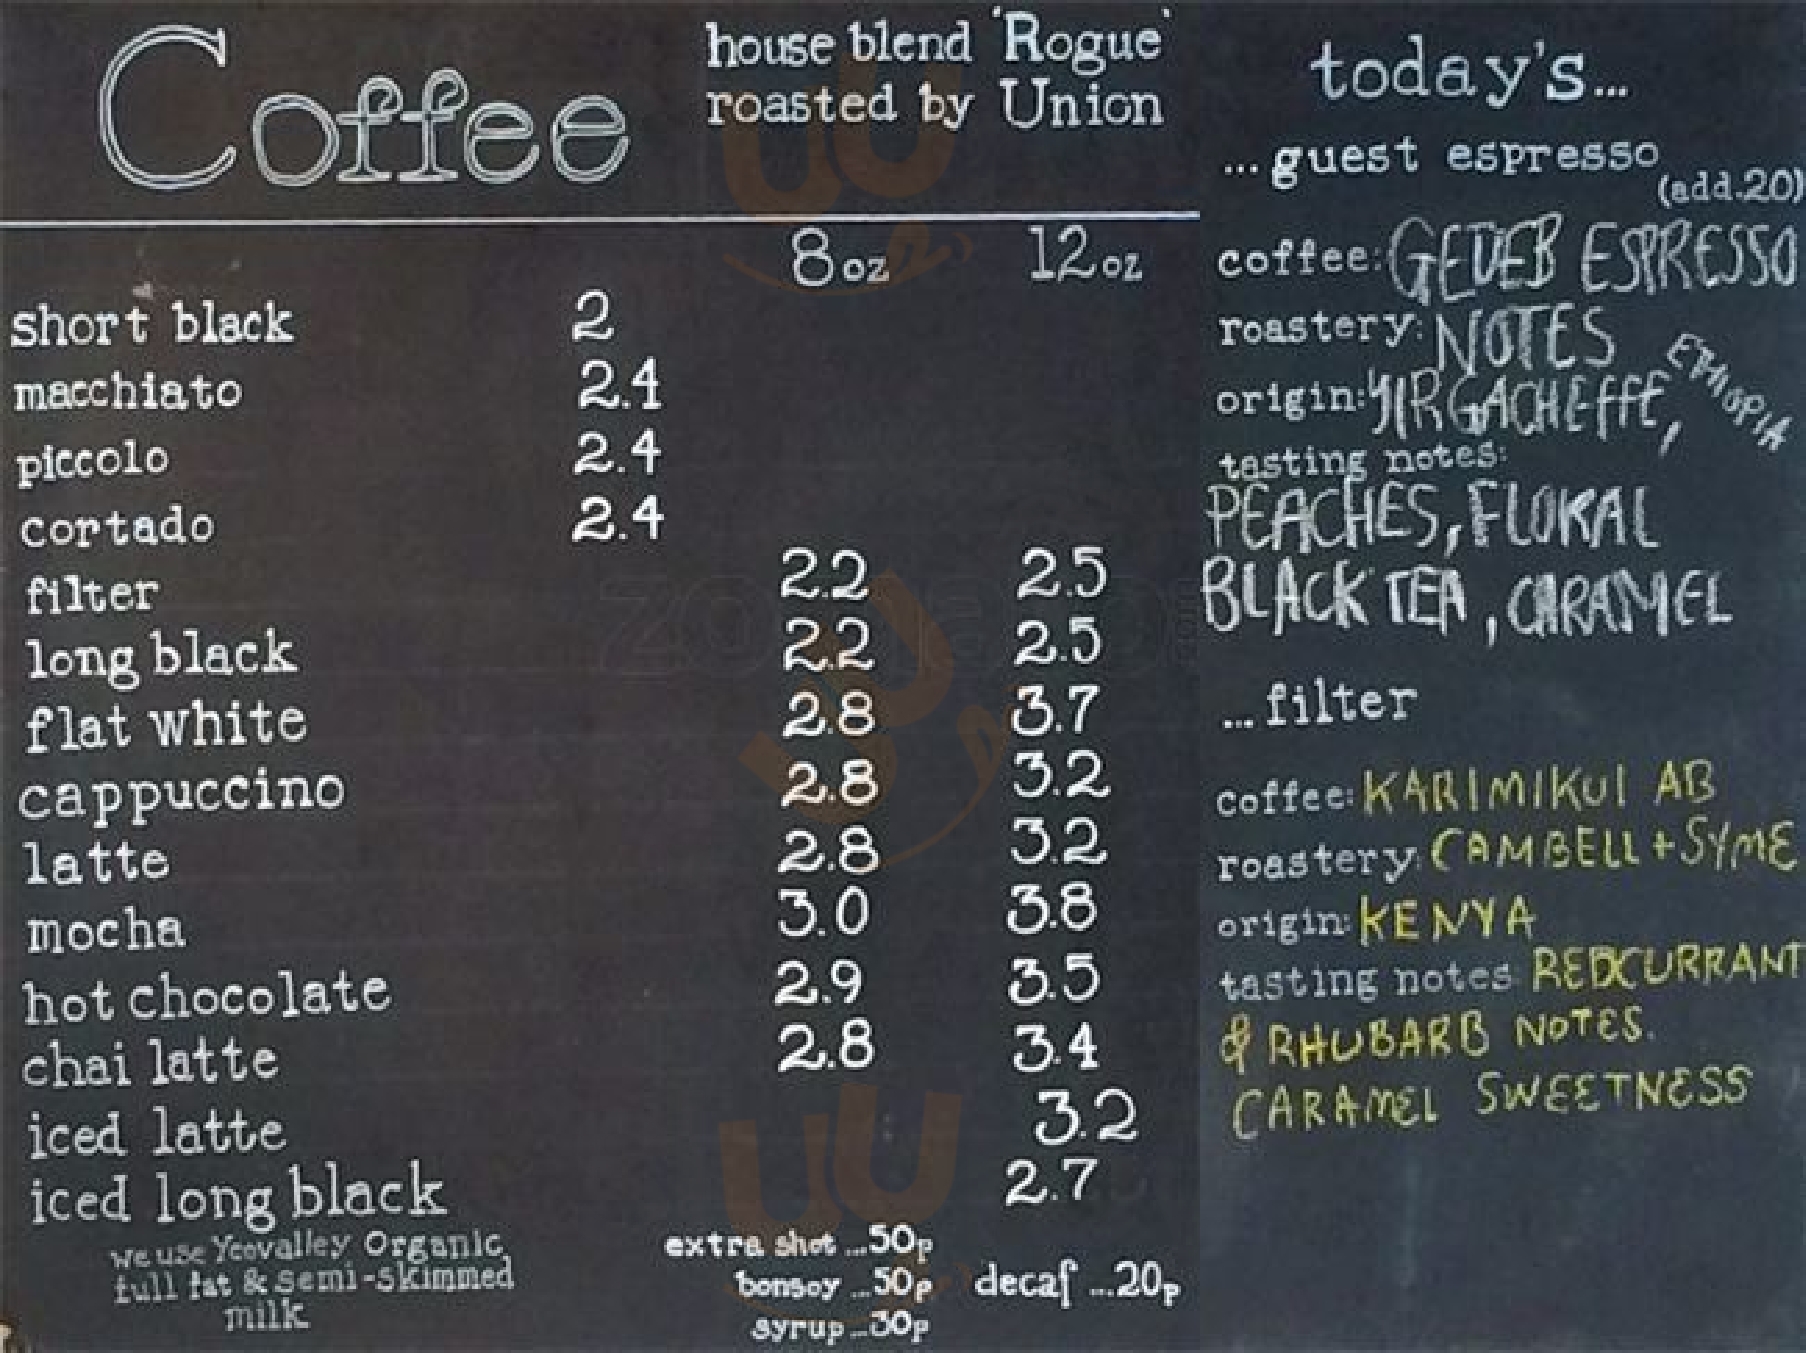 Coffee
house blend 'Rogue'
roasted by Union
8oz 12oz
short black 2
macchiato 2.4
piccolo 2.4
cortado 2.4
filter 2.2 2.5
long black 2.2 2.5
flat white 2.8 3.7
cappuccino 2.8 3.2
latte 2.8 3.2
mocha 3.0 3.8
hot chocolate 2.9 3.5
chai latte 2.8 3.4
iced latte 3.2
iced long black 2.7
we use Yeovalley Organic
full fat & semi-skimmed
milk
extra shot ...50p
bonsoy ...50p
syrup ...30p
decaf ...20p
today's...
...guest espresso
(add.20)
coffee: GEDEB ESPRESSO
roastery: NOTES
origin: YIRGACHEFFE, ETHIOPIA
tasting notes:
PEACHES, FLORAL
BLACK TEA, CARAMEL
...filter
coffee: KARIMIKUI AB
roastery: CAMBELL + SYME
origin: KENYA
tasting notes: REDCURRANT
& RHUBARB NOTES.
CARAMEL SWEETNESS